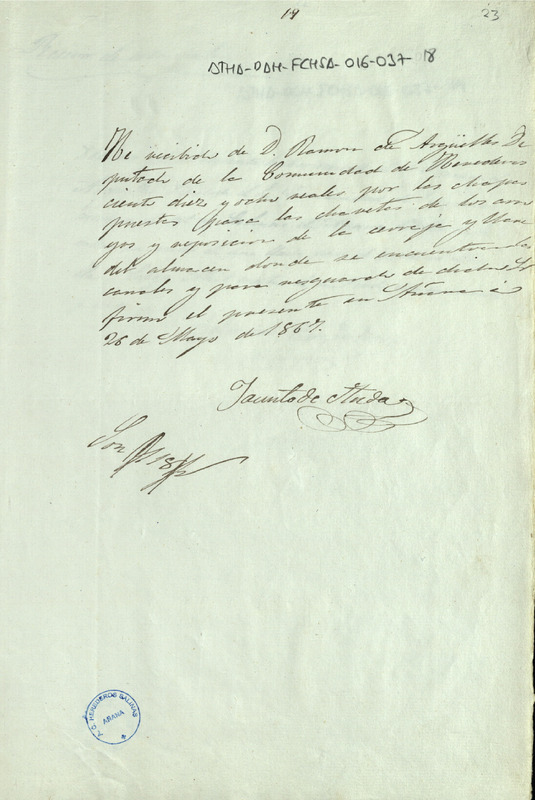 19
23
ATHA-DAH-FCHSA-016-037-18
He recibido de D. Ramon de Argüelles Di
putado de la Comunidad de Herederos
ciento diez y ocho reales por las chapas
puestas para las chavetas de los
y reposicion de la cerraja y llave
del almacen donde se encuentran los
canales y para resguardo de dicho Sr
firmo el presente en Añana á
26 de Mayo de 1867.
Jacinto de Anda
Son 118
C. HEREDEROS SALINAS
AÑANA